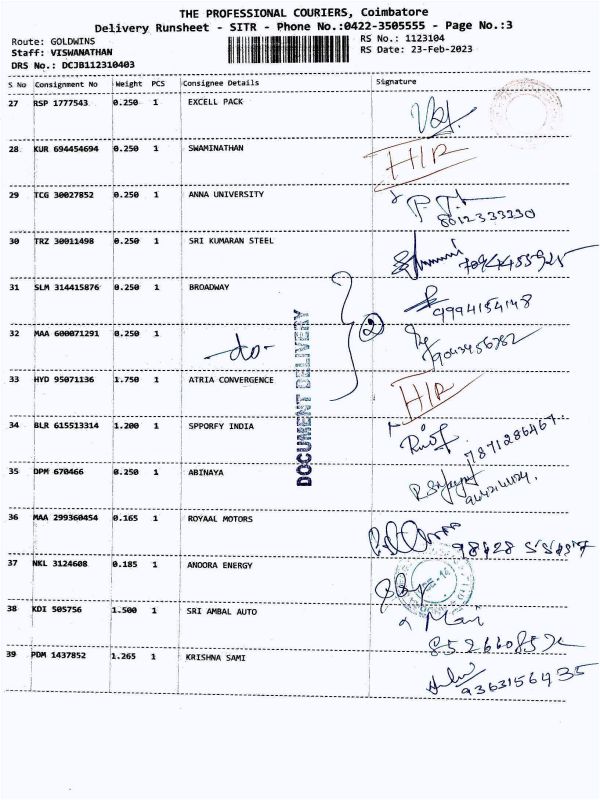 THE PROFESSIONAL COURIERS, Coimbatore
Delivery Runsheet - SITR - Phone No.:0422-3505555 - Page No.:3
Route: GOLDWINS RS No.: 1123104
Staff: VISWANATHAN RS Date: 23-Feb-2023
DRS No.: DCJB112310403
S No Consignment No Weight PCS Consignee Details Signature
27 RSP 1777543 0.250 1 EXCELL PACK
28 KUR 694454694 0.250 1 SWAMINATHAN HIR
29 TCG 30027852 0.250 1 ANNA UNIVERSITY
8012333230
30 TRZ 30011498 0.250 1 SRI KUMARAN STEEL
31 SLM 314415876 0.250 1 BROADWAY
9994154148
32 MAA 600071291 0.250 1 -do- 2
9043456782
33 HYD 95071136 1.750 1 ATRIA CONVERGENCE HIR
34 BLR 615513314 1.200 1 SPPORFY INDIA
7871286467
35 DPM 670466 0.250 1 ABINAYA
36 MAA 299360454 0.165 1 ROYAAL MOTORS
37 NKL 3124608 0.185 1 ANOORA ENERGY
38 KDI 505756 1.500 1 SRI AMBAL AUTO Mari
39 PDM 1437852 1.265 1 KRISHNA SAMI
9363156435
DOCUMENT DELIVERY